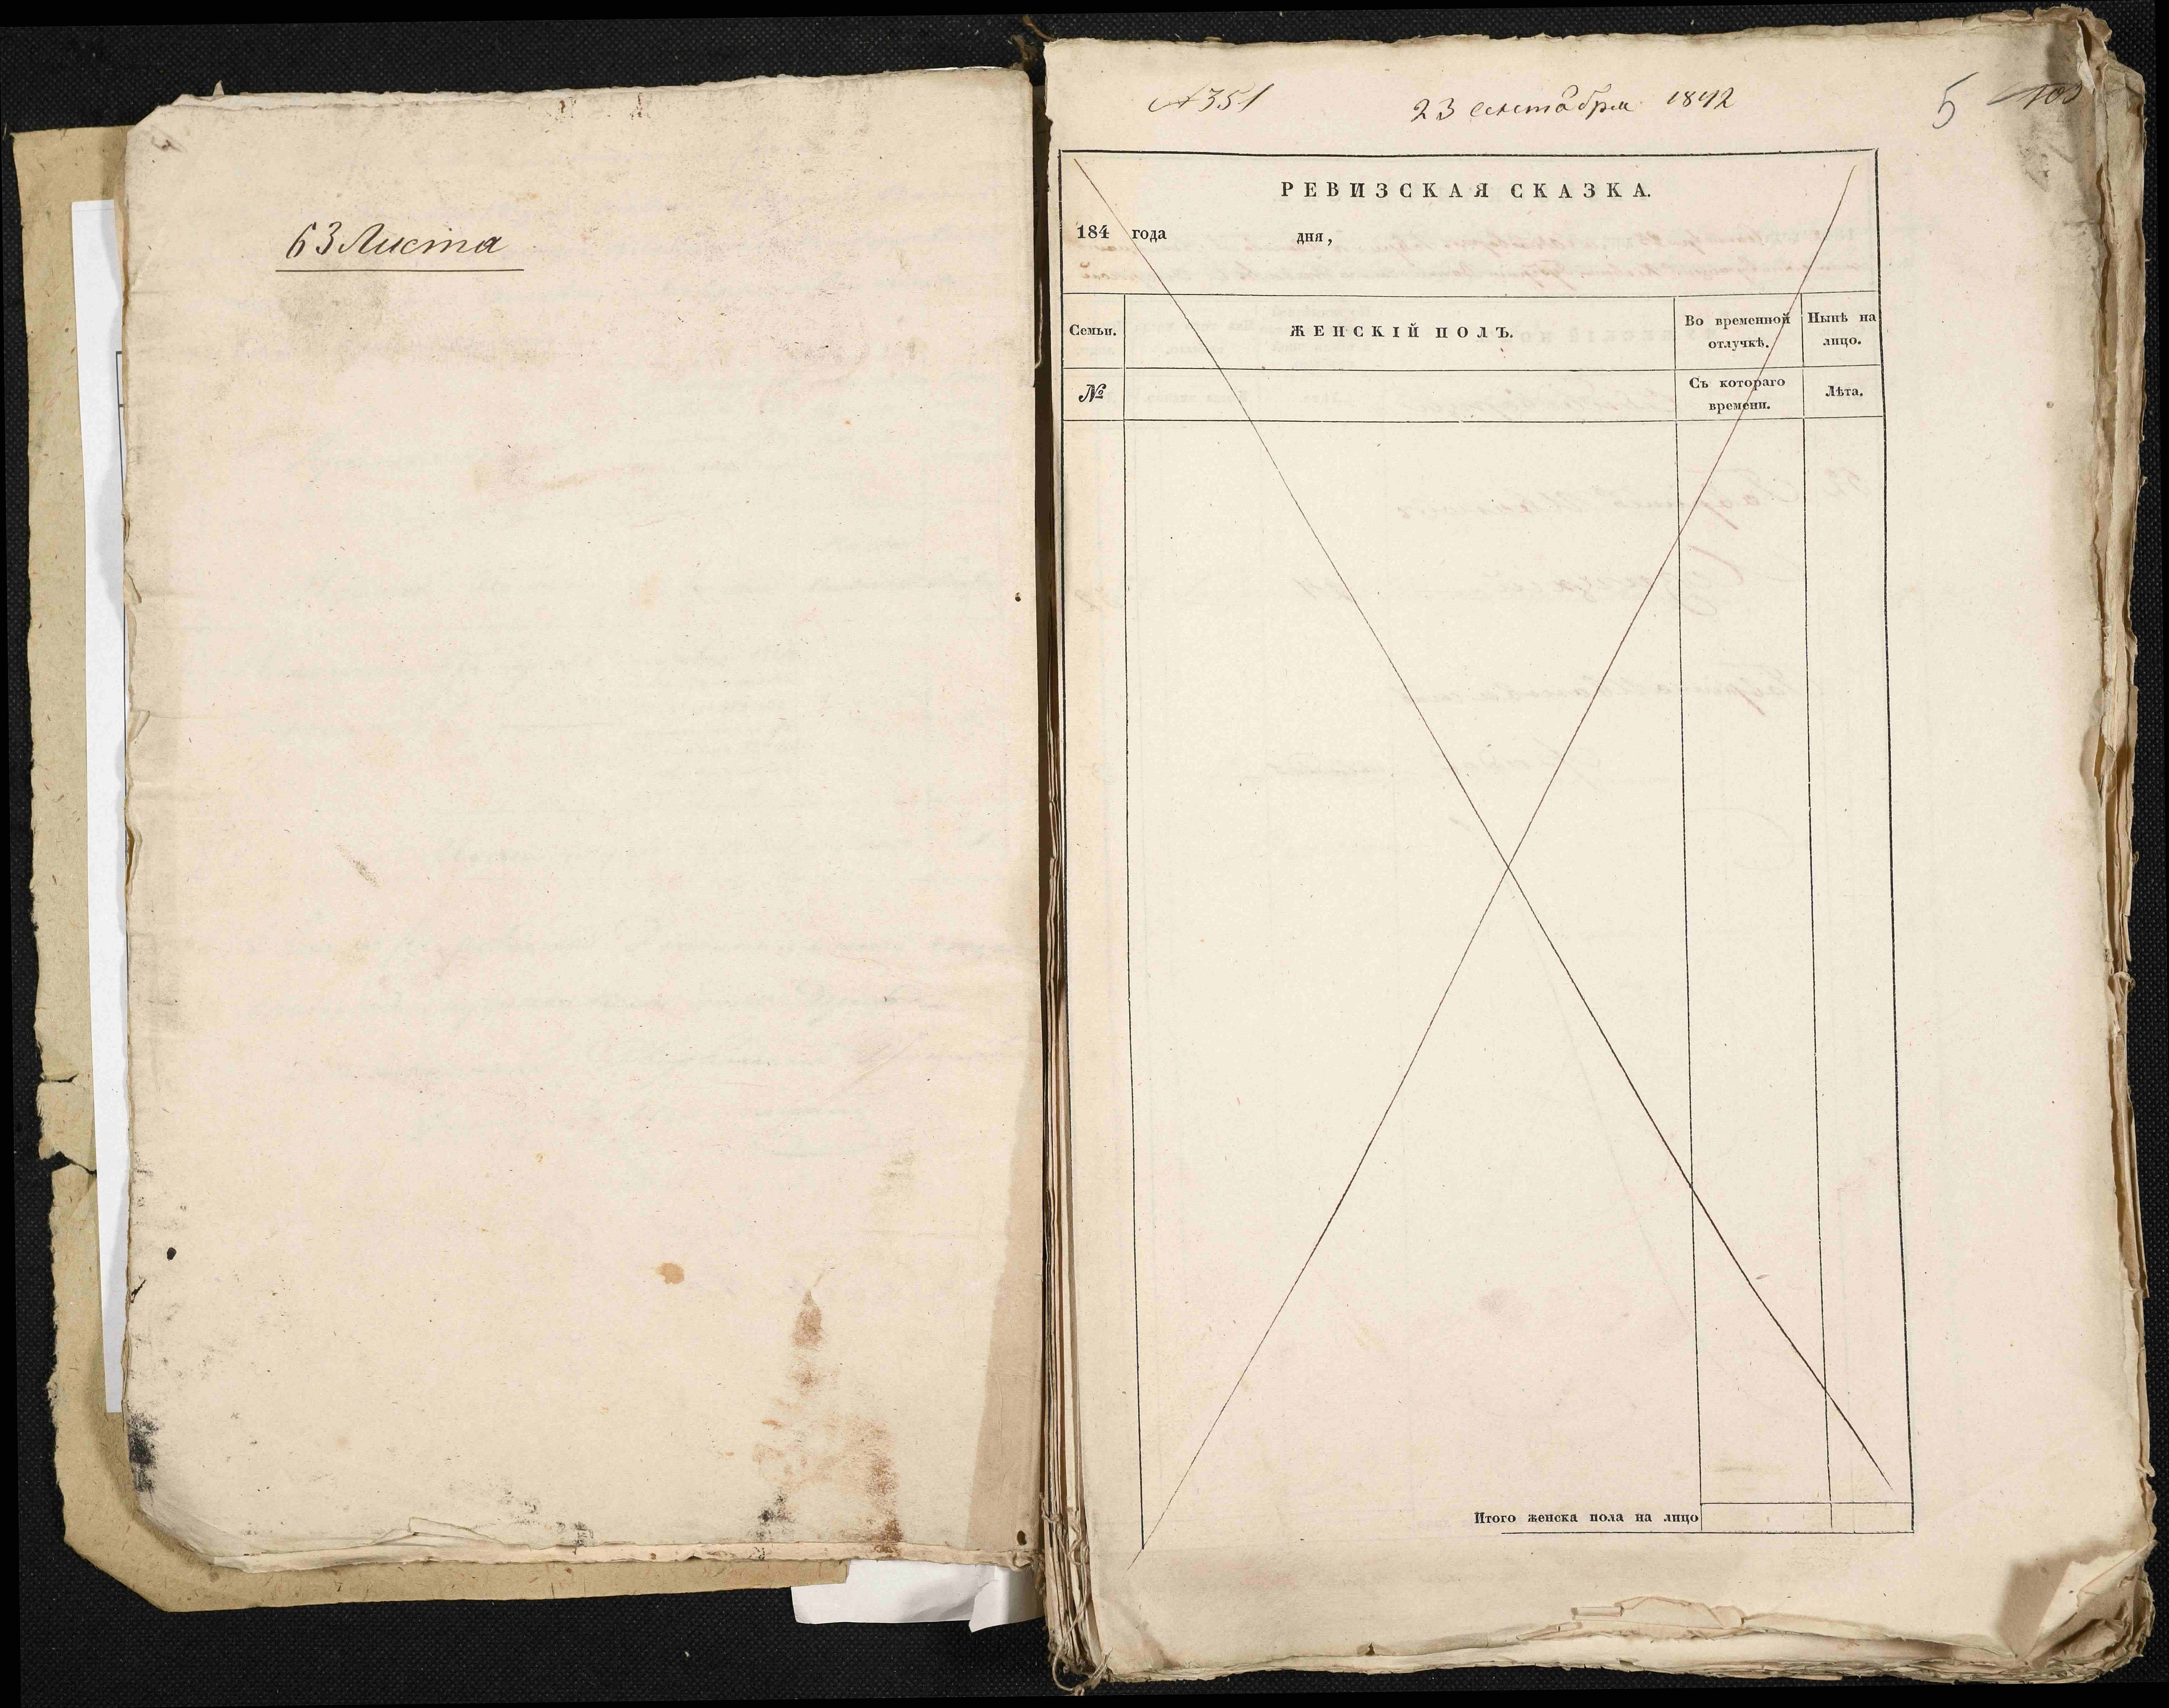 63 Листа
№351 23 сентября 1842 5
РЕВИЗСКАЯ СКАЗКА.
184 года дня,
Семьи. ЖЕНСКІЙ ПОЛЪ. Во временной отлучкѣ. Нынѣ на лицо.
№ Съ котораго времени. Лѣта.
Итого женска пола на лицо